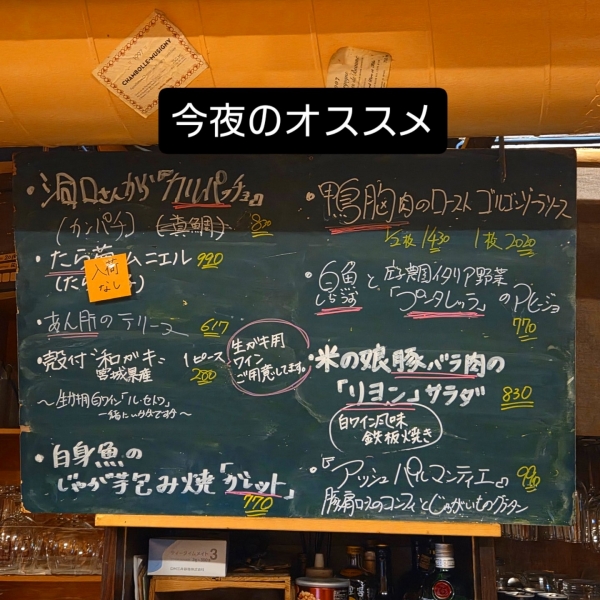 CHAMBOLLE-MUSIGNY
今夜のオススメ
・洞口さんから『カルパッチョ』
(カンパチ) (真鯛) 820
・たら ムニエル 990
入荷
なし
・あん肝のテリーヌ 617
・殻付 和がキ 1ピース
宮城県産 280
生がキ用
ワイン
ご用意してます。
〜生ガキ用白ワイン
一緒にいかがですか〜
・白身魚の
じゃが芋包み焼「ガレット」
770
・鴨胸肉のロースト ゴルゴンゾーラソース
1/2枚 1430 1枚 2020
・白魚と 庄内農園イタリア野菜
しらうお 「プンタレッラ」のアヒージョ
770
・米の娘豚バラ肉の
「リヨン」サラダ 830
白ワイン風味
鉄板焼き
・『アッシュ パルマンティエ』 990
豚肩ロースのコンフィとじゃがいものグラタン
3